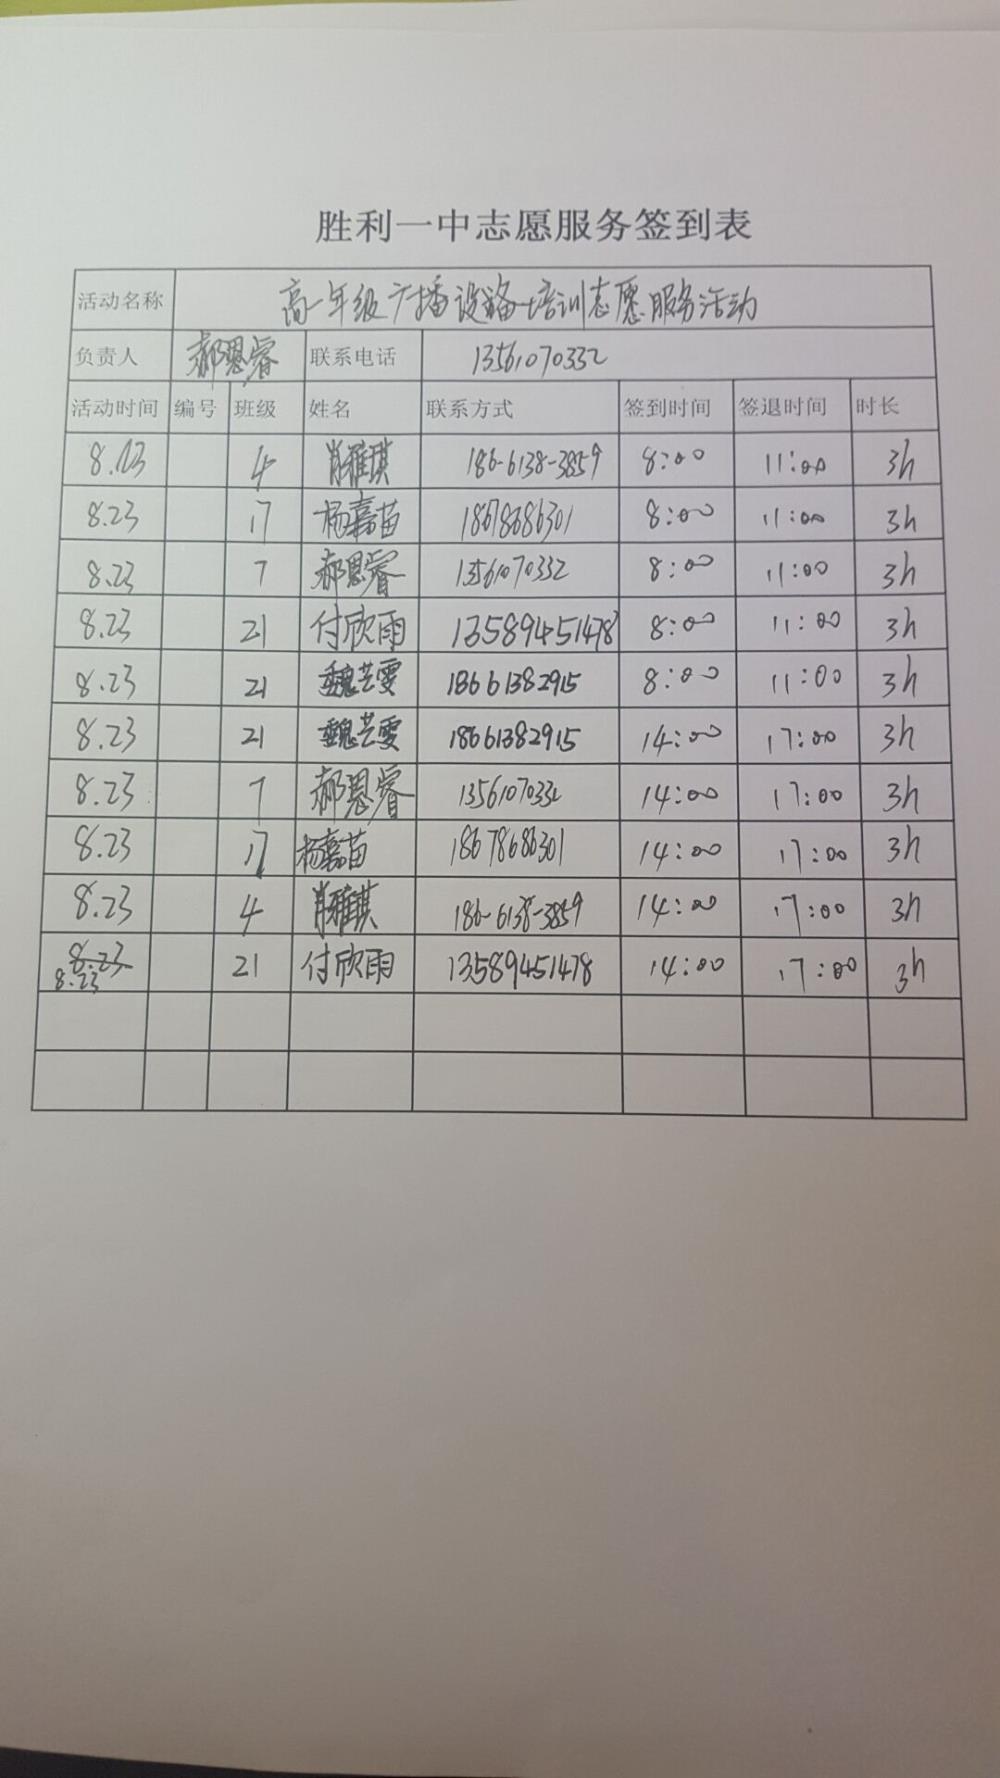 胜利一中志愿服务签到表
活动名称 高一年级广播设备培训志愿服务活动
负责人 郝恩睿 联系电话 13561070332
活动时间 编号 班级 姓名 联系方式 签到时间 签退时间 时长
8.23 4 肖雅琪 186-6138-3859 8:00 11:00 3h
8.23 17 杨嘉苗 18678686301 8:00 11:00 3h
8.23 7 郝恩睿 13561070332 8:00 11:00 3h
8.23 21 付欣雨 13589451478 8:00 11:00 3h
8.23 21 魏芸雯 18661382915 8:00 11:00 3h
8.23 21 魏芸雯 18661382915 14:00 17:00 3h
8.23 7 郝恩睿 13561070332 14:00 17:00 3h
8.23 17 杨嘉苗 18678686301 14:00 17:00 3h
8.23 4 肖雅琪 186-6138-3859 14:00 17:00 3h
8.23
8.23 21 付欣雨 13589451478 14:00 17:00 3h